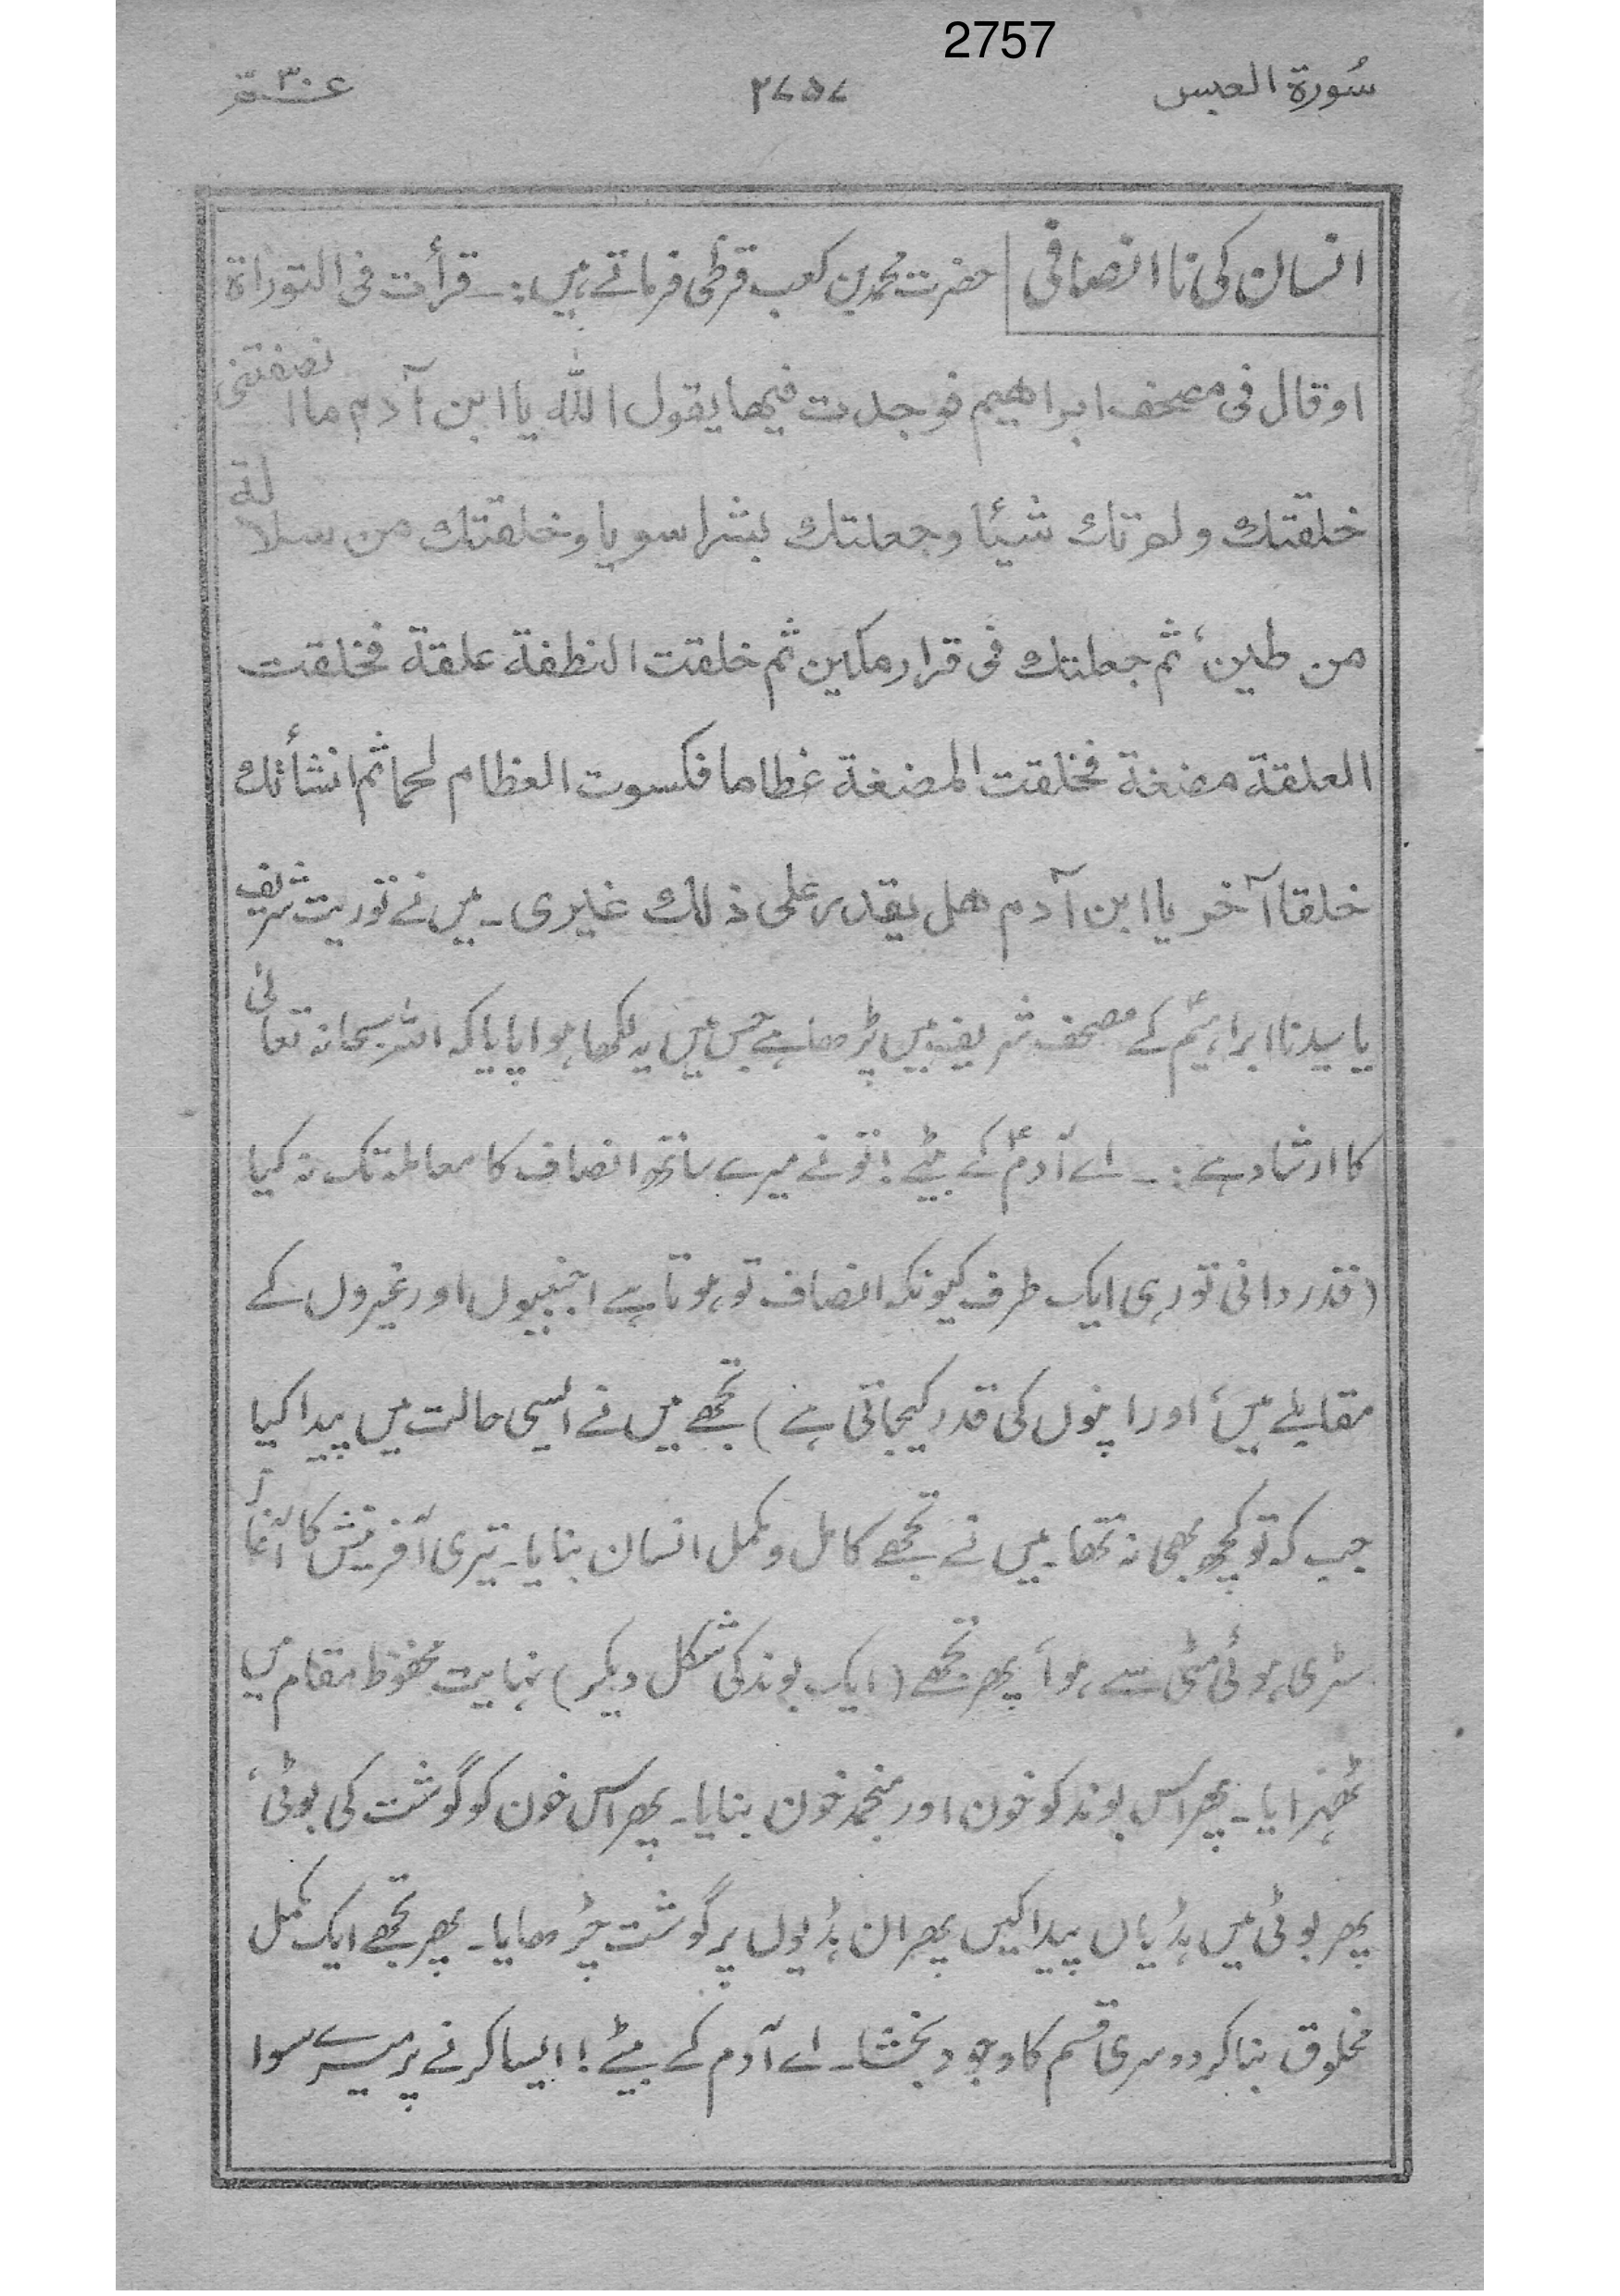 2757
سُورۃ العبس ۲۷۵۷ عـــم ۳۰
انسان کی نا انصافی حضرت محمد بن کعب قرظی فرماتے ہیں :۔ قرأت فی التوراۃ
او قال فی مصحف ابراھیم فوجدت فیھا یقول اللہ یا ابن آدم ما انصفتنی
خلقتك ولم تك شیئا وجعلتك بشرا سویا وخلقتك من سلالة
من طین، ثم جعلتك فی قرار مکین ثم خلقت النطفة علقة فخلقت
العلقة مضغة فخلقت المضغة عظاما فکسوت العظام لحما ثم انشأتك
خلقا آخر یا ابن آدم ھل یقدر علی ذلك غیری ۔ میں نے توریت شریف
یا سیدنا ابراہیمؑ کے مصحف شریف میں پڑھا ہے جس میں یہ لکھا ہوا پایا کہ اللہ سبحانہ تعالیٰ
کا ارشاد ہے :۔ اے آدمؑ کے بیٹے ! تو نے میرے ساتھ انصاف کا معاملہ تک نہ کیا
(قدر دانی تو رہی ایک طرف کیونکہ انصاف تو ہوتا ہے اجنبیوں اور غیروں کے
مقابلے میں، اور اپنوں کی قدر کیجاتی ہے) تجھے میں نے ایسی حالت میں پیدا کیا
جب کہ تو کچھ بھی نہ تھا ۔ میں نے تجھے کامل و مکمل انسان بنایا ۔ تیری آفرینش کا آغاز
سڑی ہوئی مٹی سے ہوا، پھر تجھے (ایک بوند کی شکل دیکر) نہایت محفوظ مقام میں
ٹھہرایا ۔ پھر اس بوند کو خون اور منجمد خون بنایا ۔ پھر اس خون کو گوشت کی بوٹی،
پھر بوٹی میں ہڈیاں پیدا کیں پھر ان ہڈیوں پر گوشت چڑھایا ۔ پھر تجھے ایک مکمل
مخلوق بنا کر دوسری قسم کا وجود بخشا ۔ اے آدم کے بیٹے ! ایسا کرنے پر میرے سوا